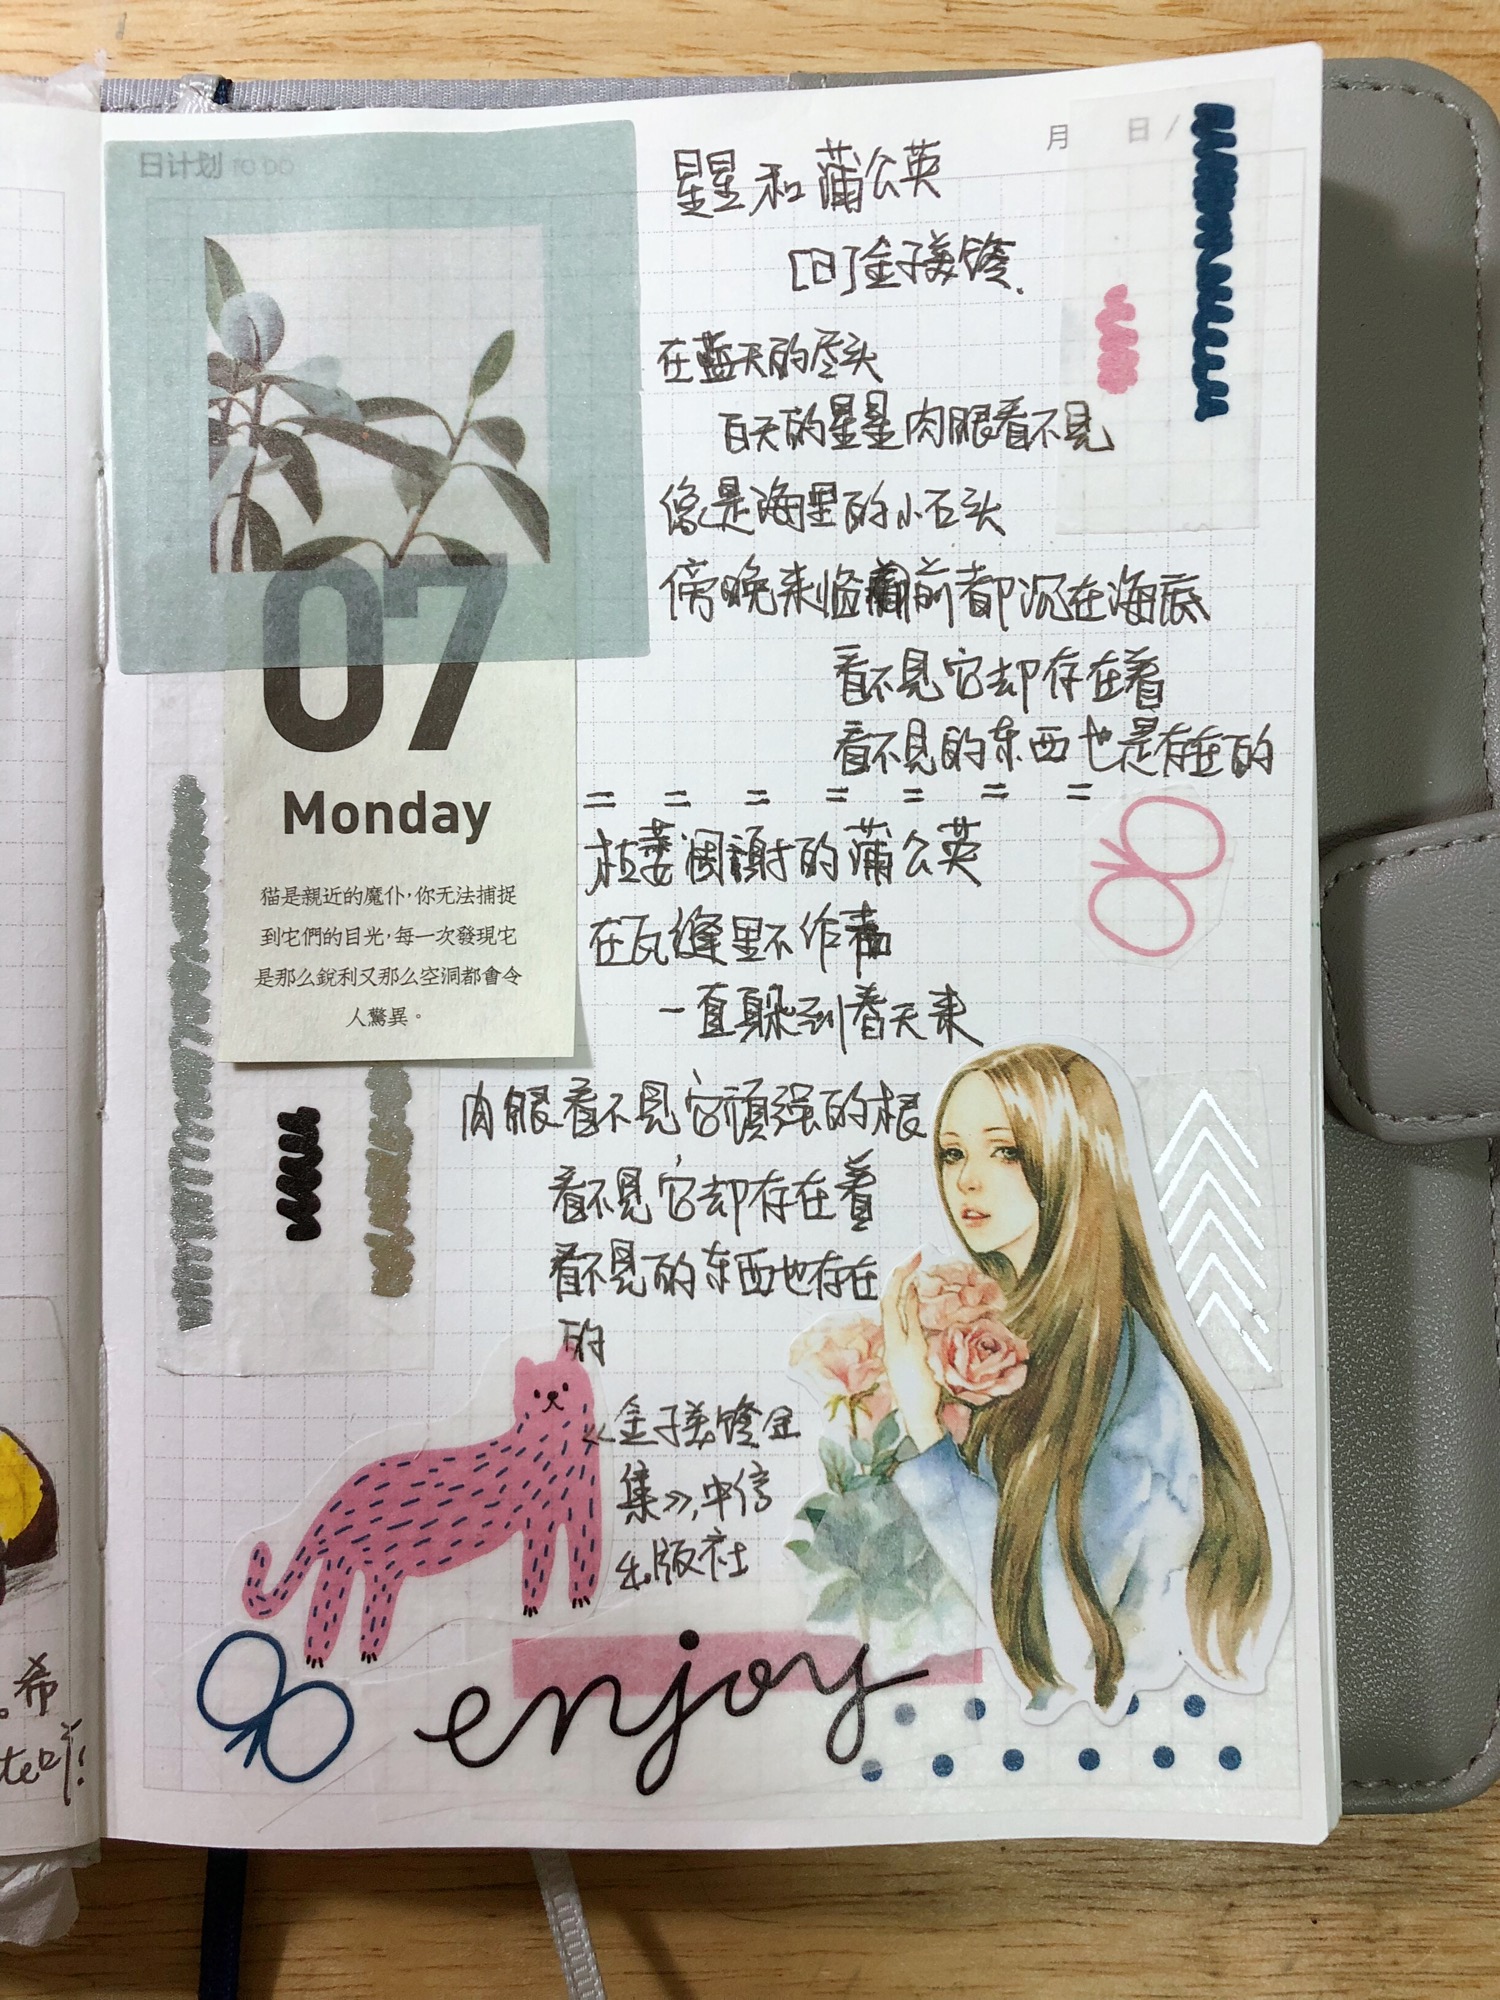 日计划 TO DO
月 日 /
星星和蒲公英
[日]金子美铃.
在蓝天的尽头
百天的星星肉眼看不见
像是海里的小石头
傍晚来临前都沉在海底
看不见它却存在着
看不见的东西也是存在的
= = = = = = =
枯萎凋謝的蒲公英
在瓦缝里不作声
一直躲到春天来
肉眼看不见它顽强的根
看不见它却存在着
看不见的东西也存在
的
《金子美铃全
集》,中信
出版社
07
Monday
猫是親近的魔仆,你无法捕捉
到它們的目光,每一次發現它
是那么銳利又那么空洞都會令
人驚異。
enjoy
。希